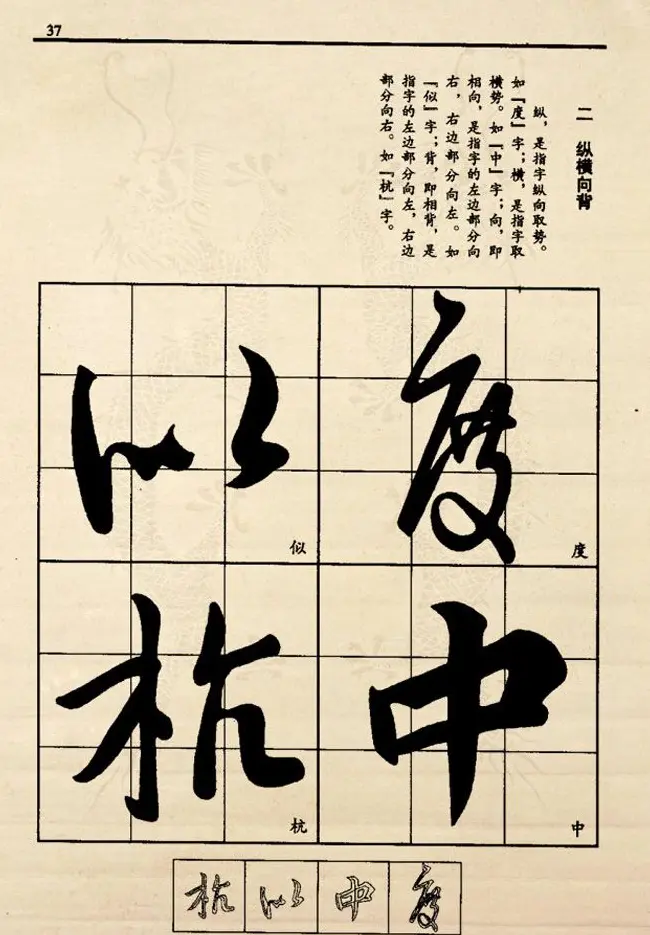 37
二 纵横向背
纵，是指字纵向取势。
如『度』字；横，是指字取
横势。如『中』字；向，即
相向，是指字的左边部分向
右，右边部分向左。如
『似』字；背，即相背，是
指字的左边部分向左，右边
部分向右。如『杭』字。
度
度
中
中
似
似
杭
杭
杭似中度